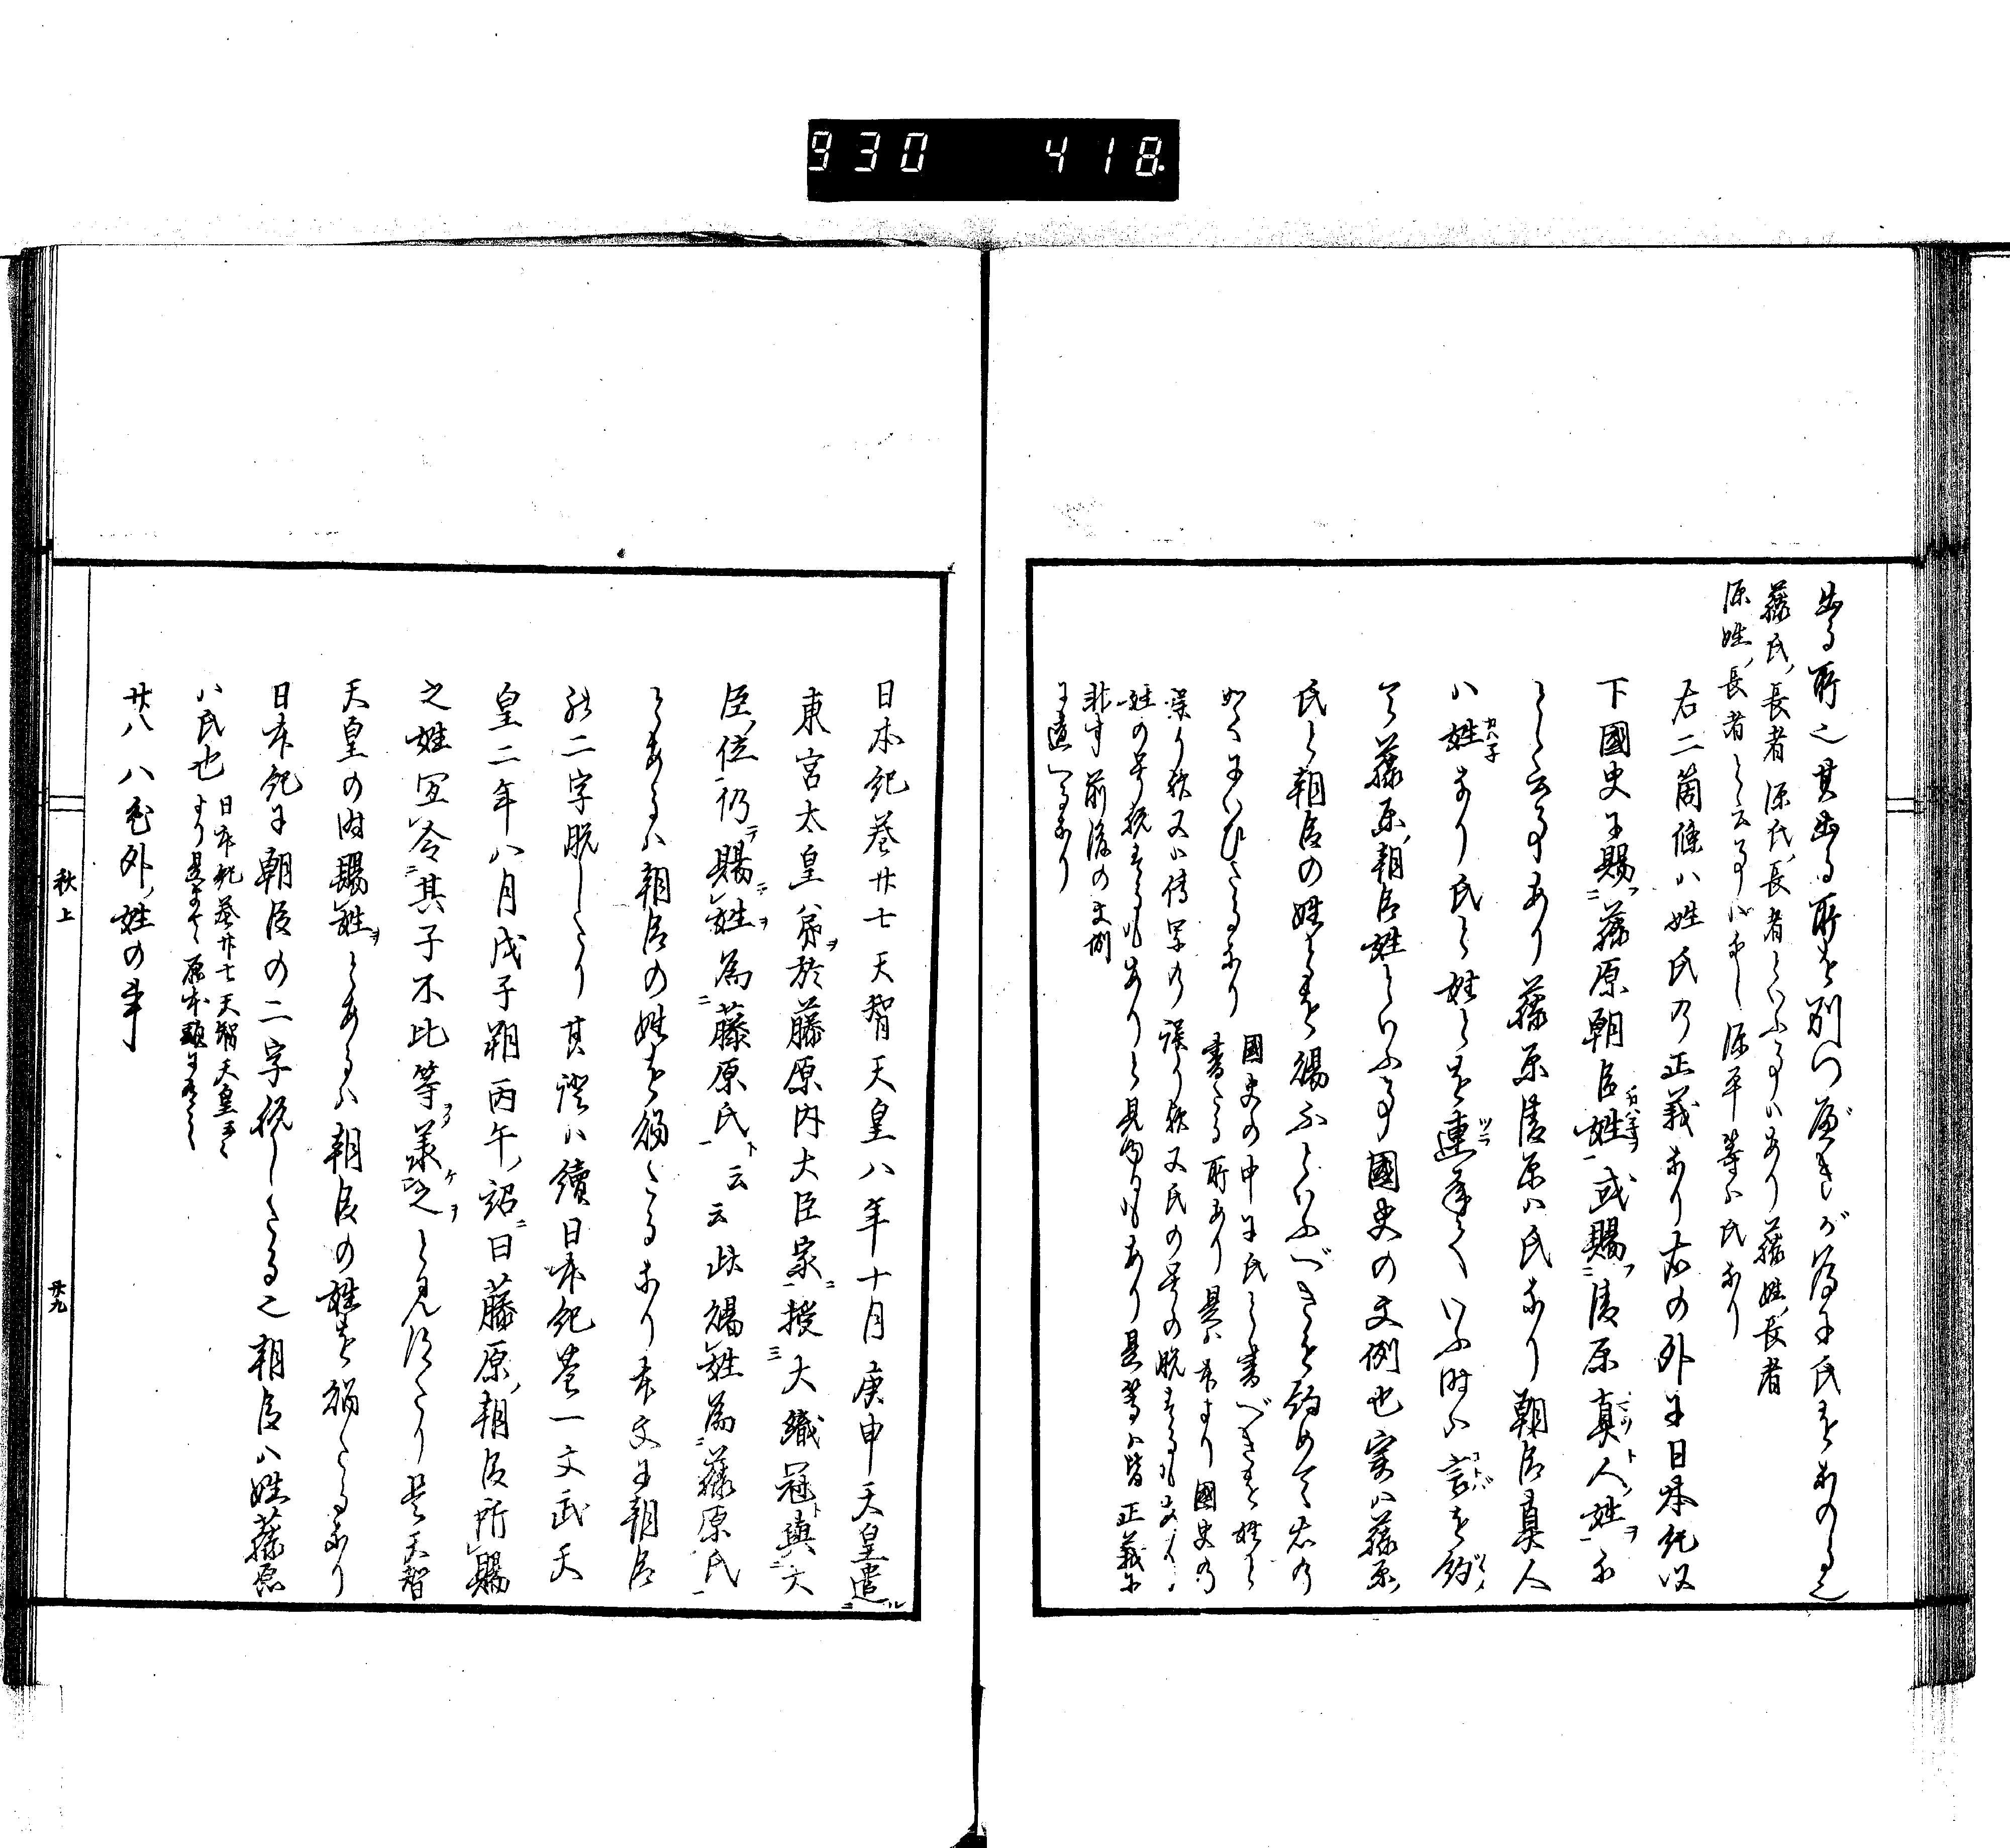 930 418
出る所之其出る所を別つべきが為に氏をなのる也
藤氏長者源氏長者といふ事はあり藤姓長者
源姓長者と云事は無し源平等は氏なり
右二箇條ハ姓氏の正義なり右の外に日本紀以
下國史に賜藤原朝臣姓或賜清原真人姓
とし云事あり藤原清原ハ氏なり朝臣真人
ハ姓なり氏と姓とを連ねていふ時は言を約
て藤原朝臣姓といふ事國史の文例也実ハ藤原
氏と朝臣の姓とを賜ふといふべきを約めて右の
如くにいひたるなり
國史の中に氏と書べきを姓と
書たる所あり是は本より國史の
誤り歟又は傳写の誤り歟又氏の字の脱たるもあり
姓の字脱たるもありと見ゆるもあり是等は皆正義に
非す前後の文例
に違へるなり
日本紀巻廿七天智天皇八年十月庚申天皇遣
東宮太皇弟於藤原内大臣家授大織冠與大
臣位仍賜姓為藤原氏云云此賜姓為藤原氏
とあるハ朝臣の姓を賜たるなり本文に朝臣
の二字脱したり其證ハ續日本紀巻一文武天
皇二年八月戊子朔丙午詔曰藤原朝臣所賜
之姓宜令其子不比等承之と見えたり是天智
天皇の時賜姓とあるハ朝臣の姓を賜たるなり
日本紀に朝臣の二字脱したる也朝臣ハ姓藤原
ハ氏也
日本紀巻廿七天智天皇
廿八 八色外姓の事
秋上
廿九